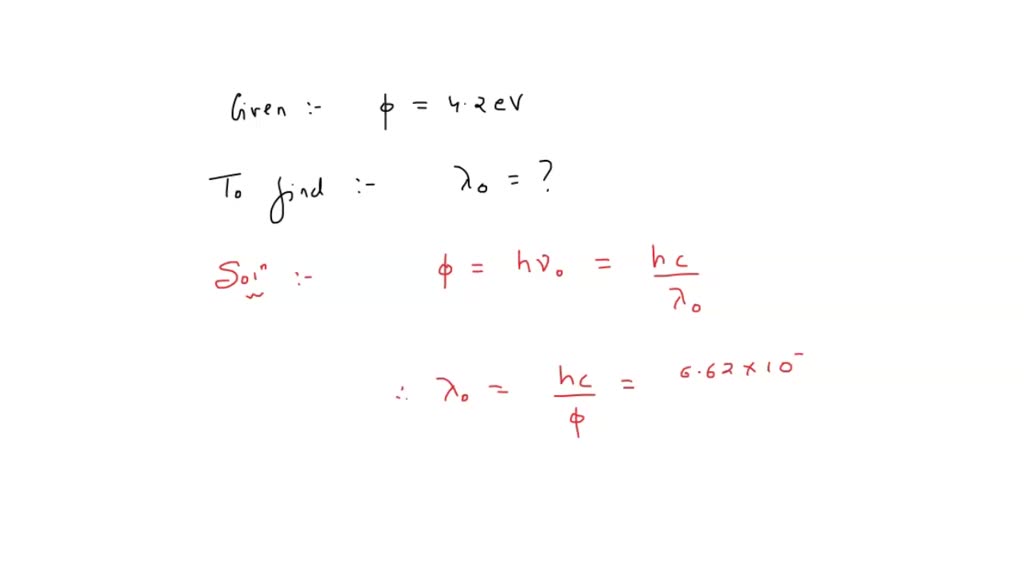 Given :- ϕ = 4.2 eV
To find :- λ₀ = ?
Solⁿ :- ϕ = hν₀ = hc/λ₀
∴ λ₀ = hc/ϕ = 6.62 × 10⁻